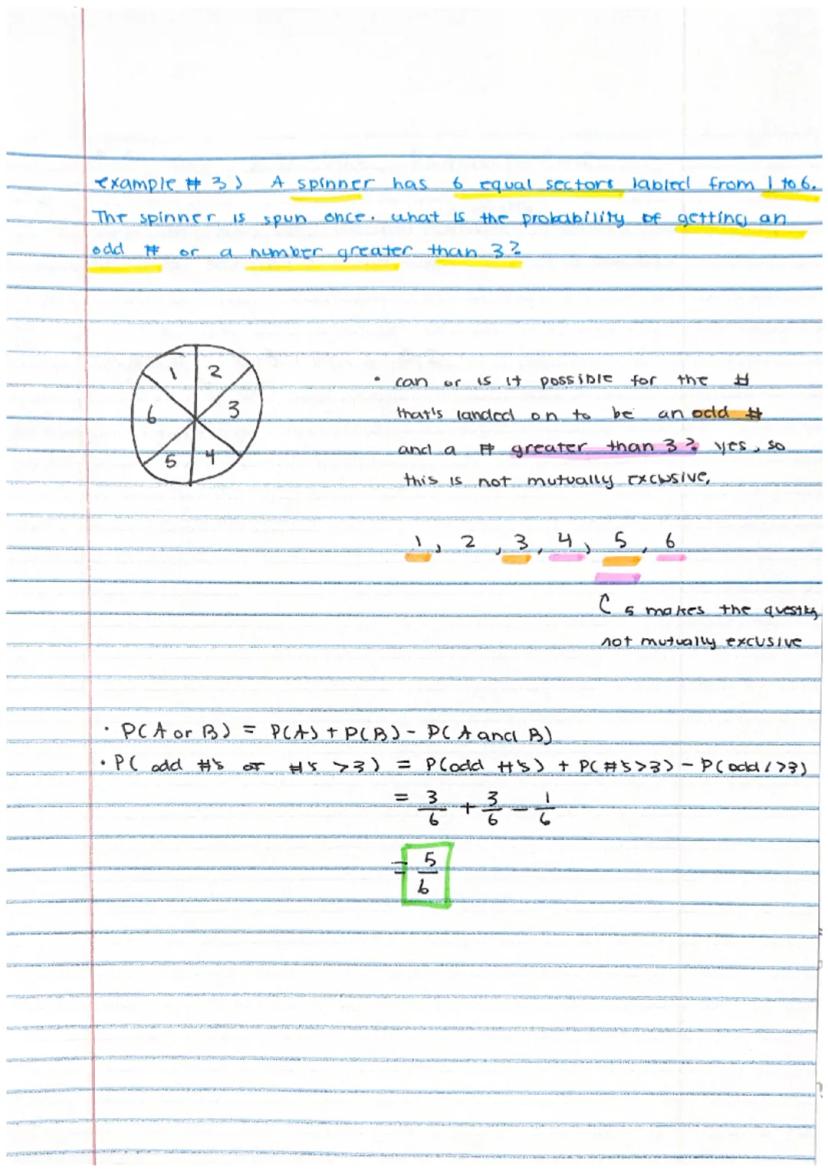 example # 3) A spinner has 6 equal sectors labled from 1 to 6.
The spinner is spun once. what is the probability of getting an
odd # or a number greater than 3?
1 2
6 3
5 4
• can or is it possible for the #
that's landed on to be an odd #
and a # greater than 3? yes, so
this is not mutually excusive,
1, 2, 3, 4, 5, 6
5 makes the question
not mutually excusive
• P(A or B) = P(A) + P(B) - P(A and B)
• P( odd #'s or #'s >3) = P(odd #'s) + P(#'s>3) - P(odd / >3)
= 3/6 + 3/6 - 1/6
= 5/6